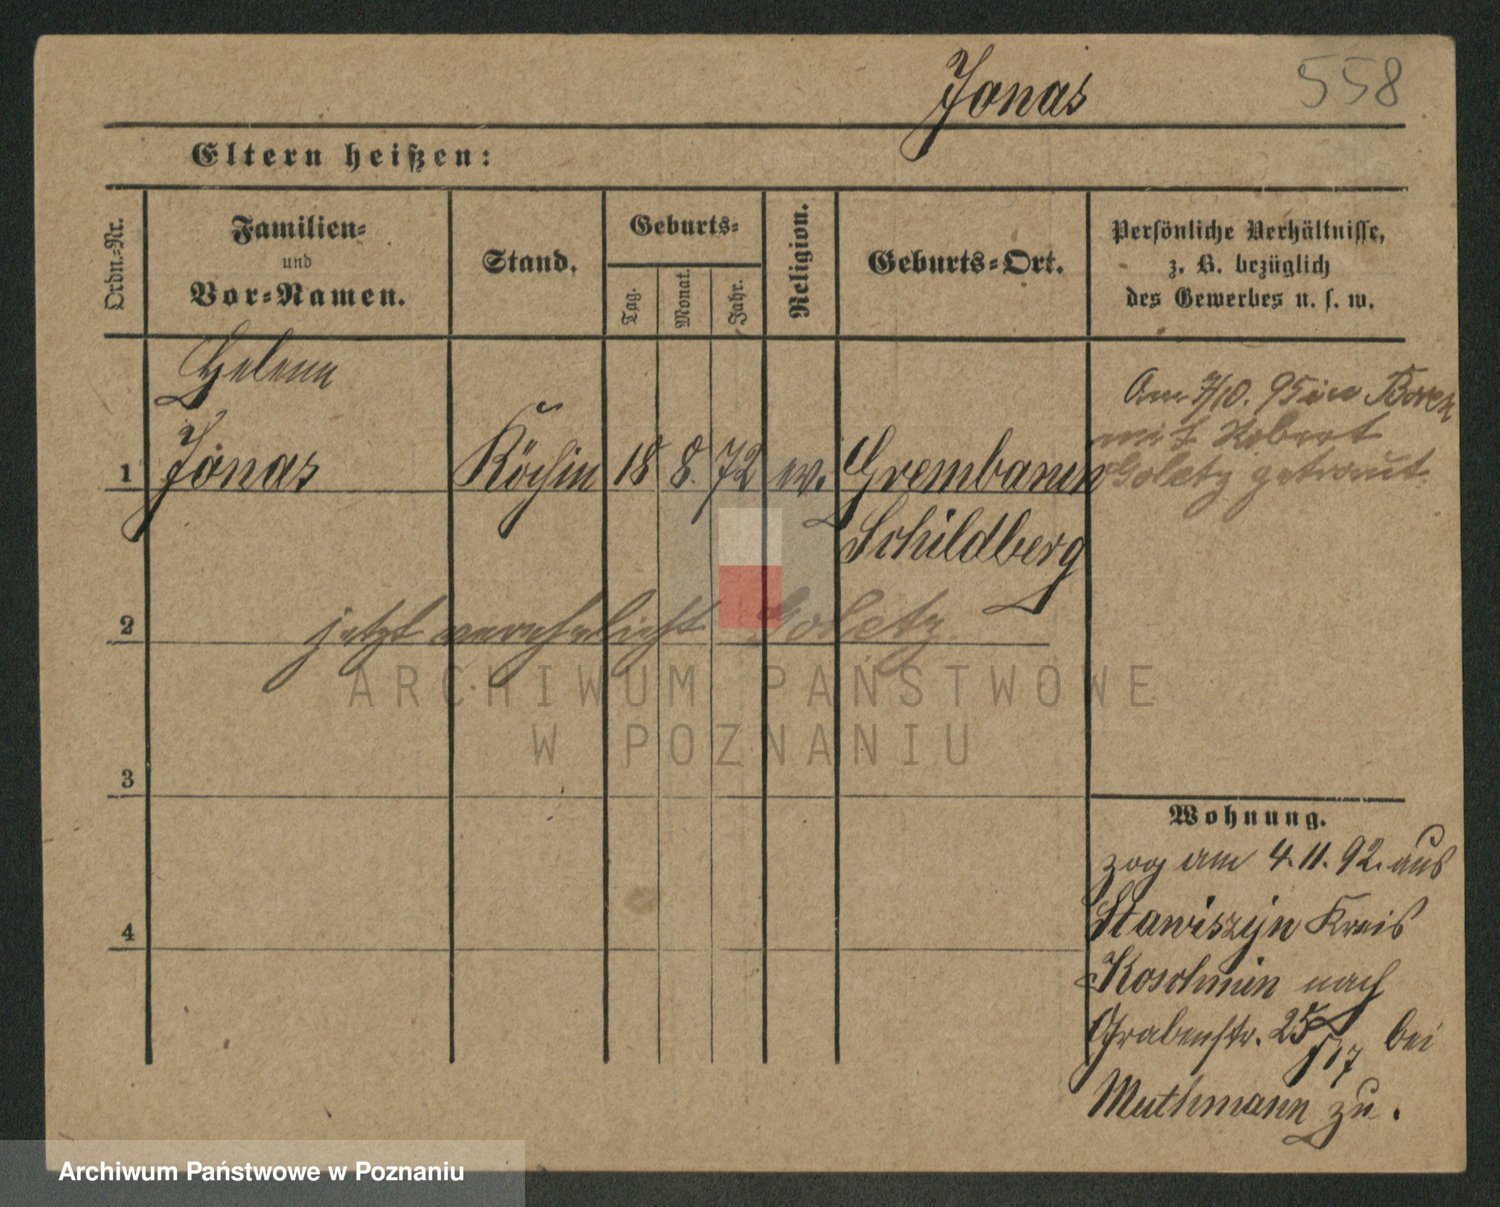 Jonas 558
Eltern heißen:
Ordn.-Nr.
Familien-
und
Vor-Namen.
Stand.
Geburts-
Tag.
Monat.
Jahr.
Religion.
Geburts-Ort.
Persönliche Verhältnisse,
z. B. bezüglich
des Gewerbes u. s. w.
Helene
1 Jonas Köchin 18 8. 72 ev. Grembanin
Schildberg
Am 7/10. 95 in Borek
mit Robert
Goletz getraut.
2 jetzt verehelicht Goletz
3
4
Wohnung.
zog am 4.11.92. aus
Stawiszyn Kreis
Koschmin nach
Grabenstr. 25 bei
Muthmann zu.
ARCHIWUM PAŃSTWOWE
W POZNANIU
Archiwum Państwowe w Poznaniu